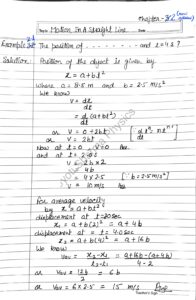 Chapter-
Topic Motion In A Straight Line Date
Example 2.1 The position of and t=4s?
Solution Position of the object is given by
x = a+bt²
where a = 8.5 m and b = 2.5 m/s²
We know
v = dx/dt
= d(a+bt²)/dt
or v = 0+2bt [dxⁿ = nxⁿ⁻¹]
or v = 2bt
Now at t=0 v=0 Ans
and at t=2.0s
v = 2b×2
= 4b
= 4×2.5 [∵ b=2.5m/s²]
v = 10 m/s Ans
For average velocity
by x = a+bt²
displacement at t=2.0s
x₁ = a+b(2)² = a+4b
displacement at t=4.0sec
x₂ = a+b(4)² = a+16b
We know
vav = x₂-x₁/t₂-t₁ = a+16b-(a+4b)/4-2
or vav = 12b/2 = 6b
or vav = 6×2.5 = 15 m/s
Teacher's Sign